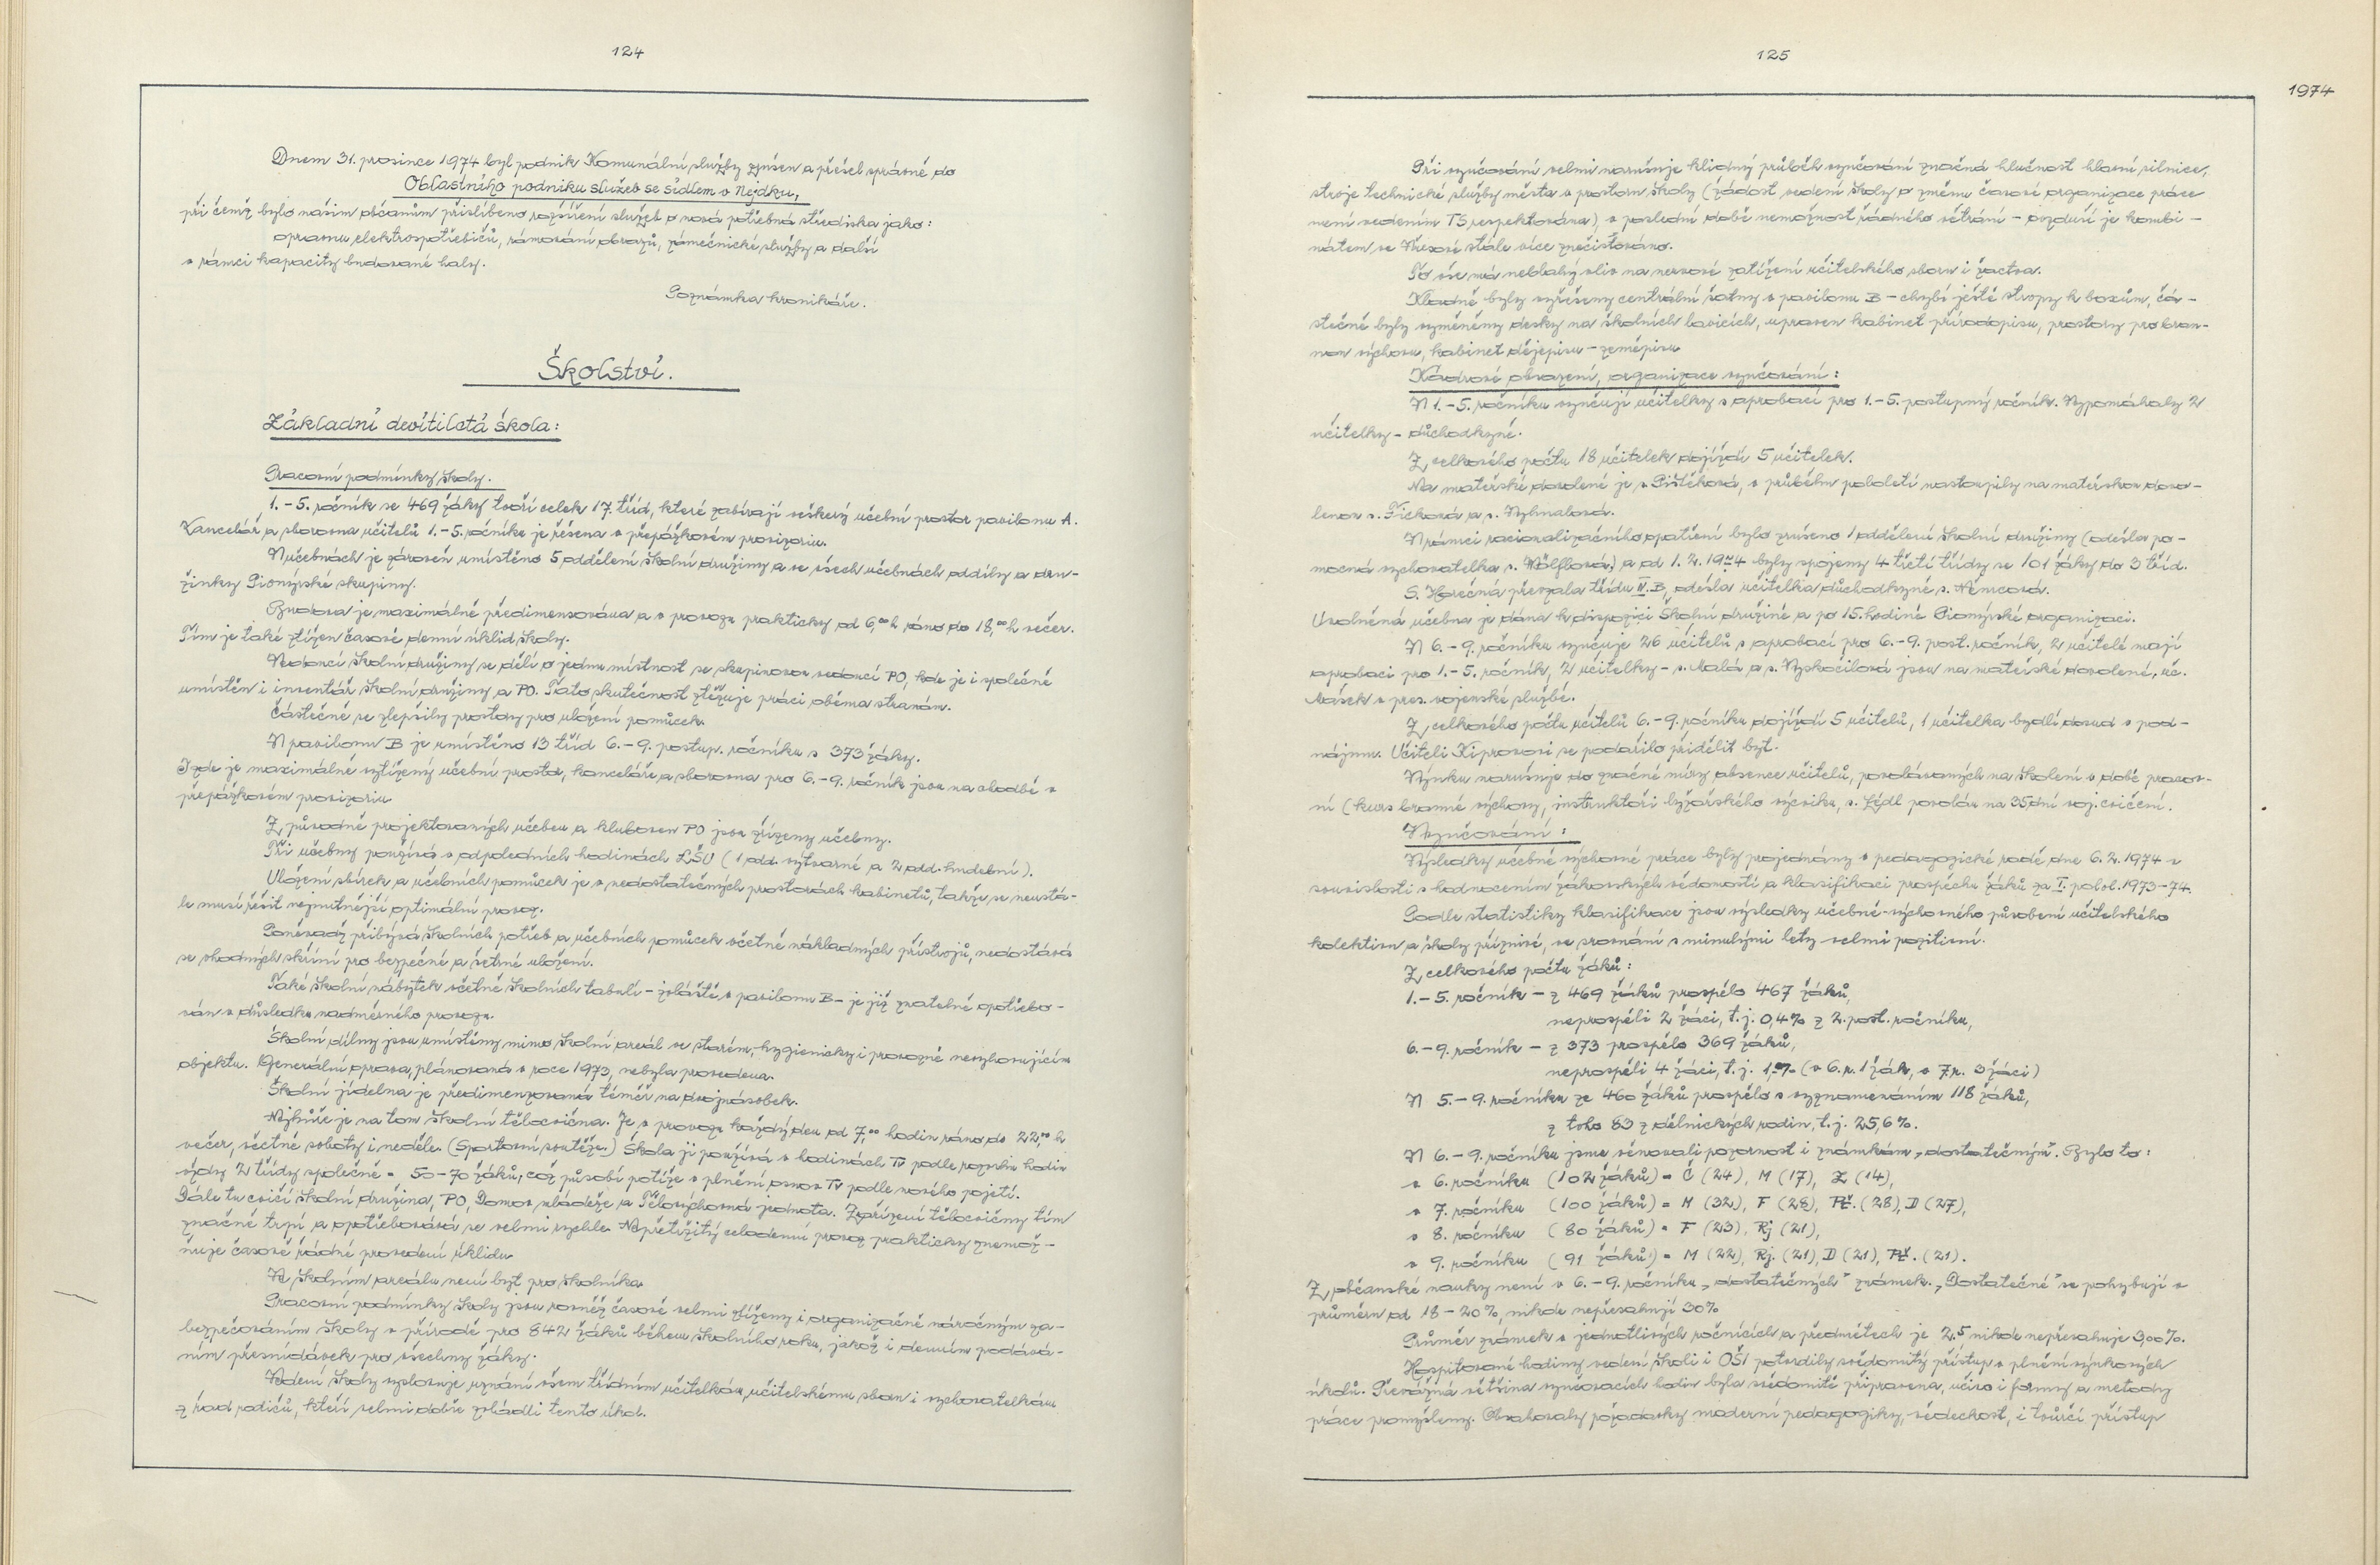 124
Dnem 31. prosince 1974 byl podnik Komunální služby zrušen a přešel správně do
Oblastního podniku služeb se sídlem v Nejdku,
při čemž bylo našim občanům přislíbeno rozšíření služeb o nová potřebná střediska jako:
opravnu elektrospotřebičů, rámování obrazů, zámečnické služby a další
v rámci kapacity budované haly.
Poznámka kronikáře.
Školství.
Základní devítiletá škola:
Pracovní podmínky školy.
1.-5. ročník se 469 žáky tvoří celek 17. tříd, které zabírají veškerý učební prostor pavilonu A.
Kancelář a sborovna učitelů 1.-5. ročníku je řešena v přepážkovém provizoriu.
V učebnách je zároveň umístěno 5 oddělení školní družiny a ve všech učebnách oddíly a dru-
žinky Pionýrské skupiny.
Budova je maximálně předimensována a v provozu prakticky od 6,00 h ráno do 18,00 h večer.
Tím je také ztížen časově denní úklid školy.
Vedoucí školní družiny se dělí o jednu místnost se skupinovou vedoucí PO, kde je i společně
umístěn i inventář školní družiny a PO. Tato skutečnost ztěžuje práci oběma stranám.
Částečně se zlepšily prostory pro uložení pomůcek.
V pavilonu B je umístěno 13 tříd 6.-9. postup. ročníku s 373 žáky.
I zde je maximálně vytížený učební prostor, kanceláře a sborovna pro 6.-9. ročník jsou na chodbě v
přepážkovém provizoriu
Z původně projektovaných učeben a kluboven PO jsou zřízeny učebny.
Tři učebny používá v odpoledních hodinách LŠU (1 odd. výtvarné a 2 odd. hudební).
Uložení sbírek a učebních pomůcek je v nedostatečných prostorách kabinetů, takže se neustá-
le musí řešit nejnutnější optimální provoz.
Poněvadž přibývá školních potřeb a učebních pomůcek včetně nákladných přístrojů, nedostává
se vhodných skříní pro bezpečné a šetrné uložení.
Také školní nábytek včetně školních tabulí - zvláště v pavilonu B - je již znatelně opotřebo-
ván v důsledku nadměrného provozu.
Školní dílny jsou umístěny mimo školní areál ve starém, hygienicky i provozně nevyhovujícím
objektu. Generální oprava, plánovaná v roce 1973, nebyla provedena.
Školní jídelna je předimenzovaná téměř na dvojnásobek.
Nejhůře je na tom školní tělocvična. Je v provozu každý den od 7,00 hodin ráno do 22,00 h
večer, včetně soboty i neděle. (Sportovní soutěže.) Škola ji používá v hodinách Tv podle rozvrhu hodin
vždy 2 třídy společně = 50-70 žáků, což působí potíže v plnění osnov Tv podle nového pojetí.
Dále tu cvičí školní družina, PO, Domov mládeže a Tělovýchovná jednota. Zařízení tělocvičny tím
značně trpí a opotřebovává se velmi rychle. Nepřetržitý celodenní provoz prakticky znemož-
ňuje časově řádné provedení úklidu.
Ve školním areálu není byt pro školníka.
Pracovní podmínky školy jsou rovněž časově velmi ztíženy i organizačně náročným za-
bezpečováním školy v přírodě pro 842 žáků během školního roku, jakož i denním podává-
ním přesnídávek pro všechny žáky.
Vedení školy vyslovuje uznání všem třídním učitelkám, učitelskému sboru i vychovatelkám
z řad rodičů, kteří velmi dobře zvládli tento úkol.
125
1974
Při vyučování velmi narušuje klidný průběh vyučování značná hlučnost hlavní silnice,
stroje technické služby města v prostoru školy (žádost vedení školy o změnu časové organizace práce
není vedením TS respektována), v poslední době nemožnost řádného větrání - ovzduší je kombi-
nátem ve Vřesové stále více znečišťováno.
To vše má neblahý vliv na nervové zatížení učitelského sboru i žactva.
Kladně byly vyřešeny centrální šatny v pavilonu B - chybí ještě stropy k boxům, čá-
stečně byly vyměněny desky na školních lavicích, upraven kabinet přírodopisu, prostory pro bran-
nou výchovu, kabinet dějepisu - zeměpisu
Kádrové obsazení, organizace vyučování:
V 1.-5. ročníku vyučují učitelky s aprobací pro 1.-5. postupný ročník. Vypomáhaly 2
učitelky - důchodkyně.
Z celkového počtu 18 učitelek dojíždí 5 učitelek.
Na mateřské dovolené je s. Pištěková, v průběhu pololetí nastoupily na mateřskou dovo-
lenou s. Ficková a s. Vyhnalová.
V rámci racionalizačního opatření bylo zrušeno 1 oddělení školní družiny (odešla po-
mocná vychovatelka s. Wölflová) a od 1. 2. 1974 byly spojeny 4 třetí třídy se 101 žáky do 3 tříd.
S. Horečná převzala třídu II. B, odešla učitelka důchodkyně s. Němcová.
Uvolněná učebna je dána k dispozici školní družině a po 15. hodině Pionýrské organizaci.
V 6.-9. ročníku vyučuje 26 učitelů s aprobací pro 6.-9. post. ročník, 2 učitelé mají
aprobaci pro 1.-5. ročník, 2 učitelky - s. Malá a s. Vyskočilová jsou na mateřské dovolené, uč.
Mašek v pres. vojenské službě.
Z celkového počtu učitelů 6.-9. ročníku dojíždí 5 učitelů, 1 učitelka bydlí dosud v pod-
nájmu. Učiteli Kiprovovi se podařilo přidělit byt.
Výuku narušuje do značné míry absence učitelů, povolávaných na školení v době pracov-
ní (kurs branné výchovy, instruktoři lyžařského výcviku, s. Lédl povolán na 35dní voj. cvičení.
Vyučování:
Výsledky učebně výchovné práce byly projednány v pedagogické radě dne 6. 2. 1974 v
souvislosti s hodnocením žákovských vědomostí a klasifikaci prospěchu žáků za I. polol. 1973-74.
Podle statistiky klasifikace jsou výsledky učebně-výchovného působení učitelského
kolektivu a školy příznivé, ve srovnání s minulými lety velmi pozitivní.
Z celkového počtu žáků:
1.-5. ročník - z 469 žáků prospělo 467 žáků,
neprospěli 2 žáci, t. j. 0,4% z 2. post. ročníku,
6.-9. ročník - z 373 prospělo 369 žáků,
neprospěli 4 žáci, t. j. 1,% (v 6. r. 1 žák, v 7. r. 3 žáci)
V 5.-9. ročníku ze 460 žáků prospělo s vyznamenáním 118 žáků,
z toho 83 z dělnických rodin, t. j. 25,6%.
V 6.-9. ročníku jsme věnovali pozornost i známkám „dostatečným". Bylo to:
v 6. ročníku (102 žáků) = Č (24), M (17), Z (14),
v 7. ročníku (100 žáků) = M (32), F (28), Př. (28), D (27),
v 8. ročníku (80 žáků) = F (23), Rj (21),
v 9. ročníku (91 žáků) = M (22), Rj. (21), D (21), Př. (21).
Z občanské nauky není v 6.-9. ročníku „dostatečných" známek. „Dostatečné" se pohybují v
průměru od 18-20%, nikde nepřesahují 30%
Průměr známek v jednotlivých ročnících a předmětech je 2,5 nikde nepřesahuje 3,00%.
Hospitované hodiny vedení školi i OŠI potvrdily svědomitý přístup v plnění výukových
úkolů. Převážná většina vyučovacích hodin byla svědomitě připravená, učivo i formy a metody
práce promyšleny. Obsahovaly požadavky moderní pedagogiky, vědeckost, i tvůrčí přístup